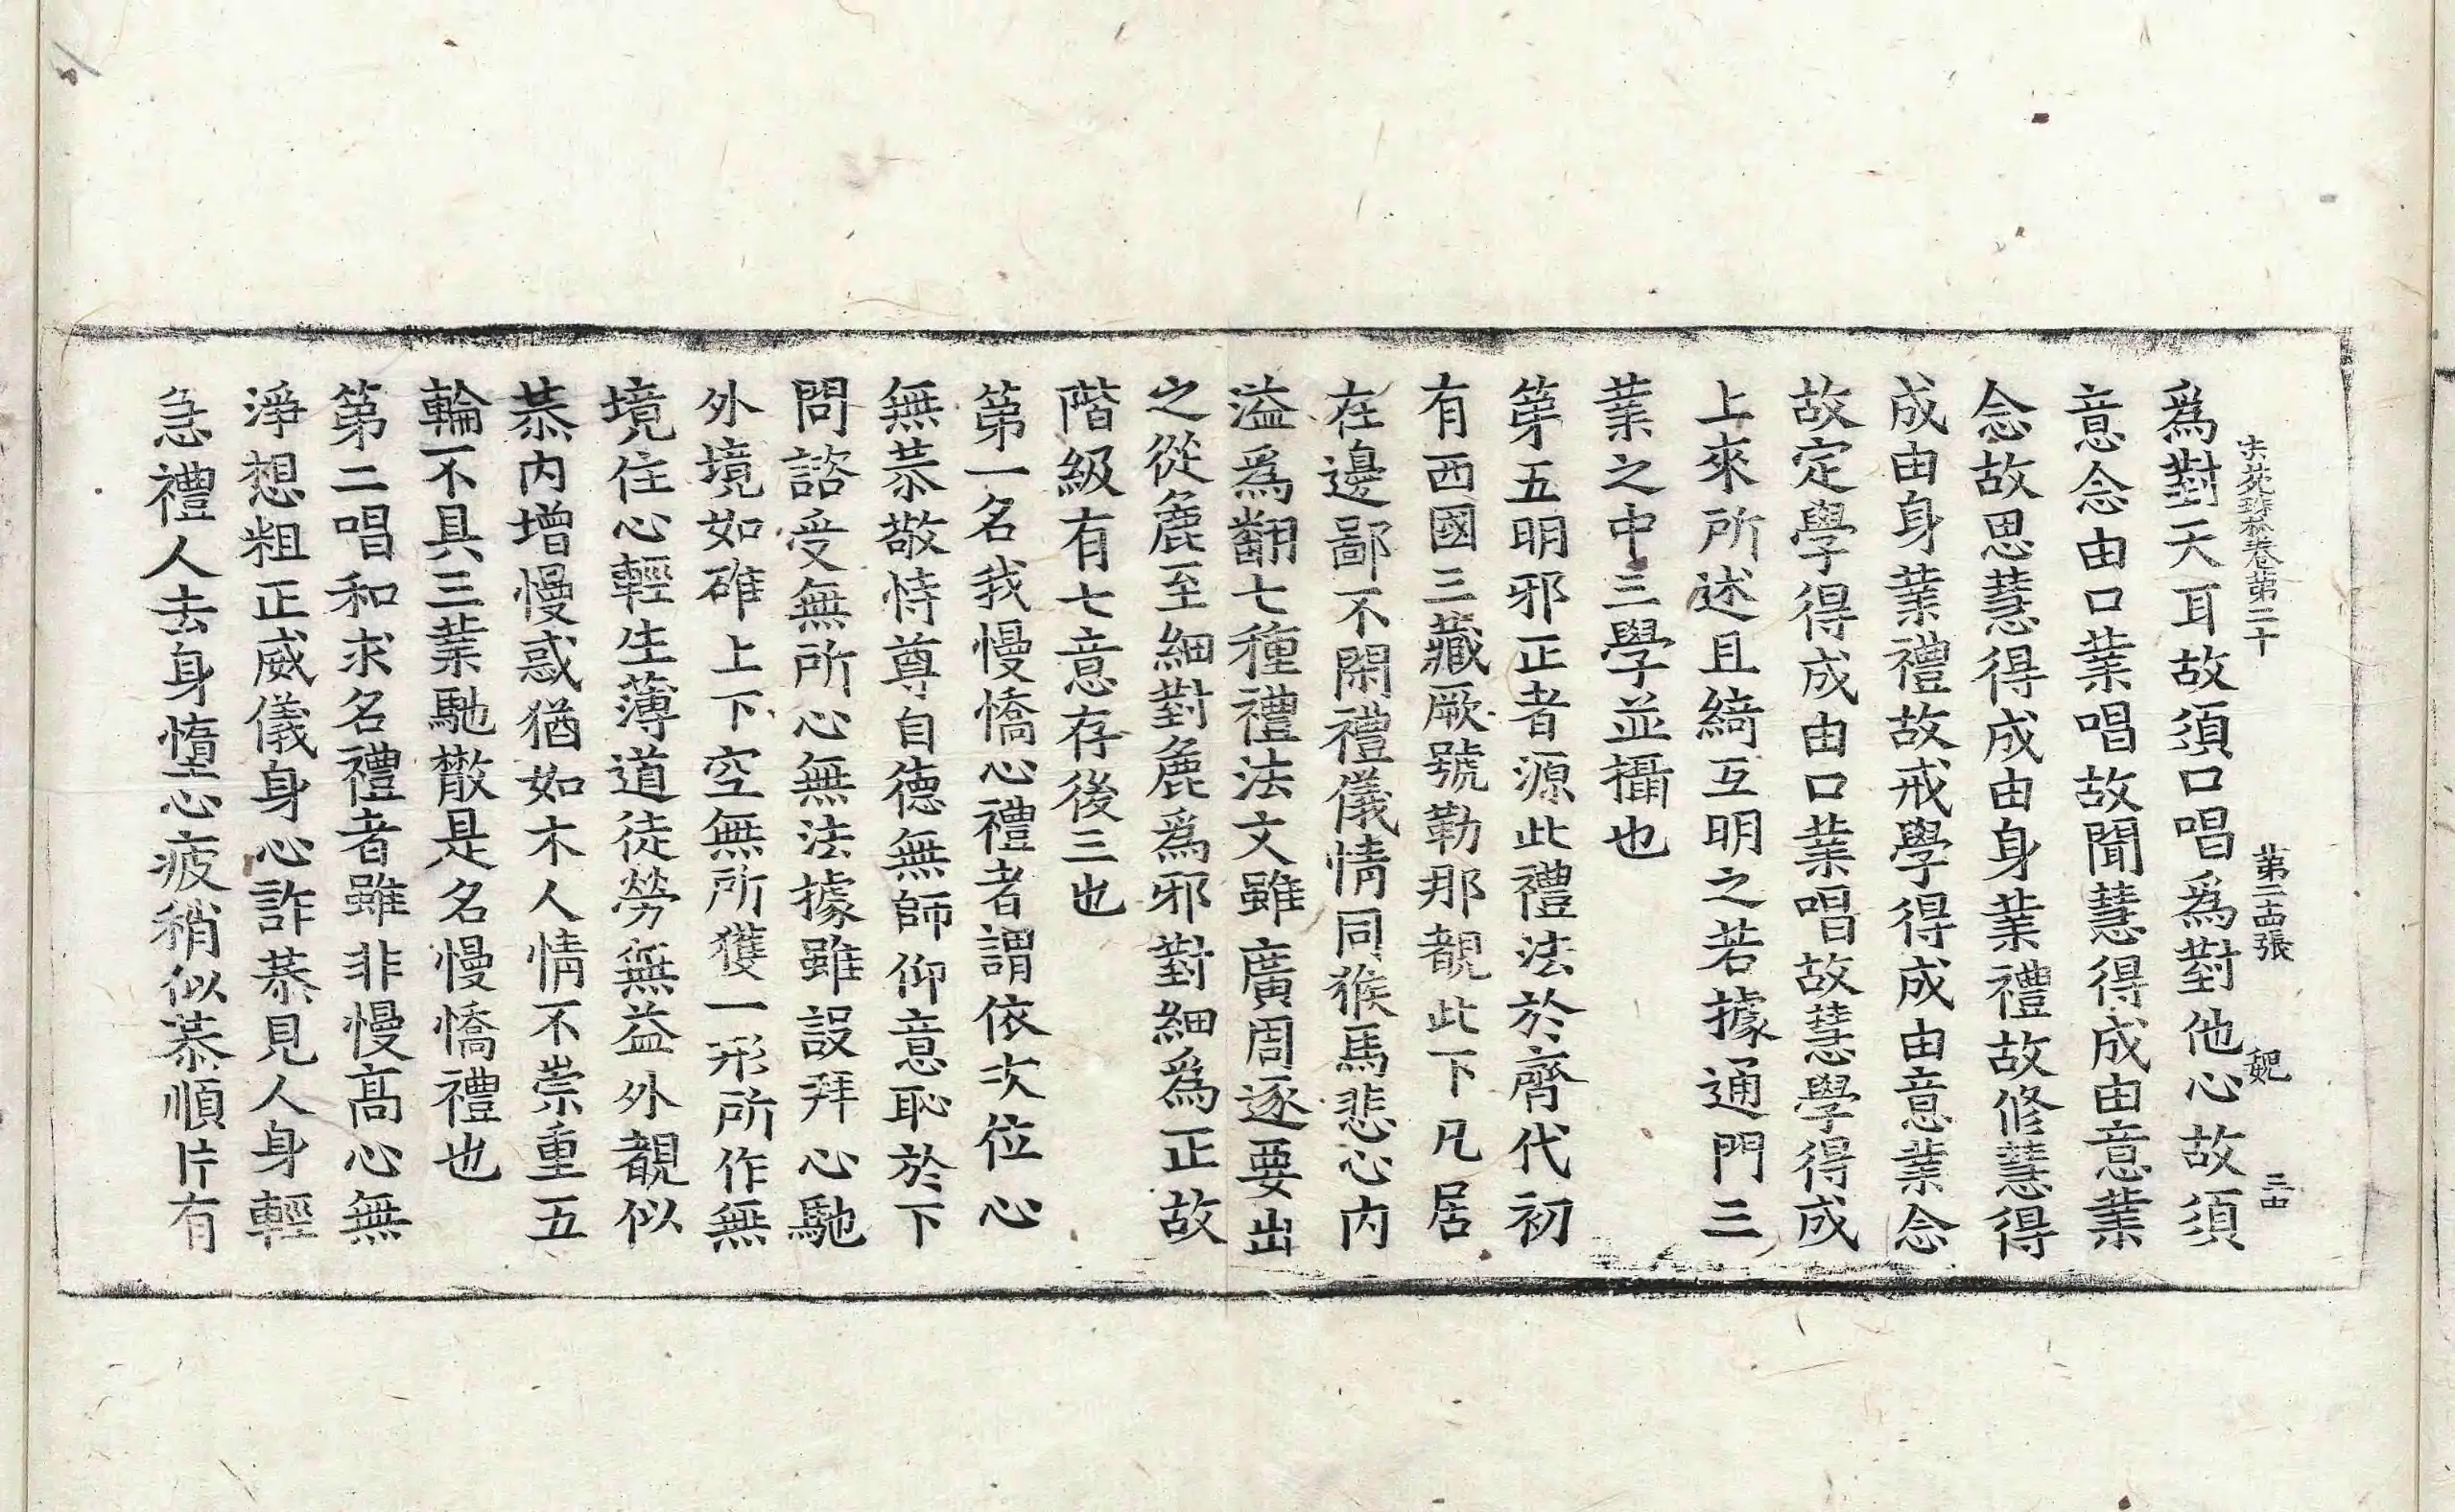 法苑珠林卷第二十 第二十四張 䰟
爲對天耳故須口唱爲對他心故須
意念由口業唱故聞慧得成由意業
念故思慧得成由身業禮故修慧得
成由身業禮故戒學得成由意業念
故定學得成由口業唱故慧學得成
上來所述且綺互明之若據通門三
業之中三學並攝也
第五明邪正者源此禮法於齊代初
有西國三藏厥號勒那覩此下凡居
在邊鄙不閑禮儀情同猴馬悲心内
溢爲翻七種禮法文雖廣周逐要出
之從麁至細對麁爲邪對細爲正故
階級有七意存後三也
第一名我慢憍心禮者謂依次位心
無恭敬恃尊自德無師仰意恥於下
問諮受無所心無法據雖設拜心馳
外境如碓上下空無所獲一形所作無
境住心輕生薄道徒勞無益外覩似
恭内增慢惑猶如木人情不崇重五
輪不具三業馳散是名慢憍禮也
第二唱和求名禮者雖非慢高心無
淨想粗正威儀身心詐恭見人身輕
急禮人去身惰心疲稍似恭順片有